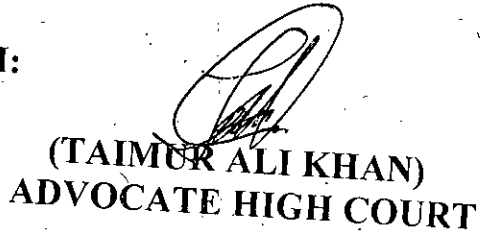 I:
(TAIMUR ALI KHAN)
ADVOCATE HIGH COURT